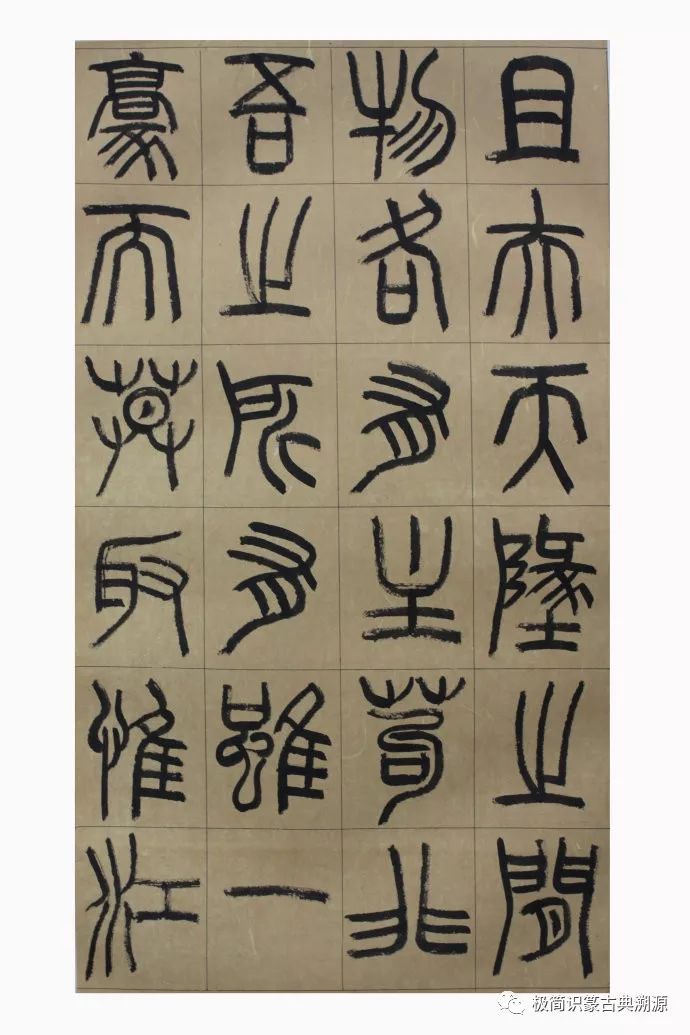 且夫天墬之間
物各有主苟非
吾之所有雖一
豪而莫取惟江
极简识篆古典溯源